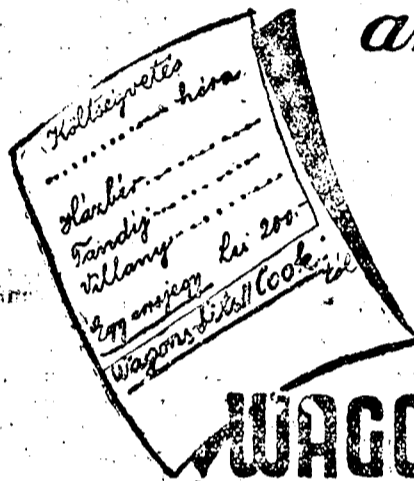 Költségvetés
............ hóra
Házbér............
Tandíj............
Villany............
Egy sorsjegy Lei 200.-
Wagons-Lits//Cook-tól
WAGO